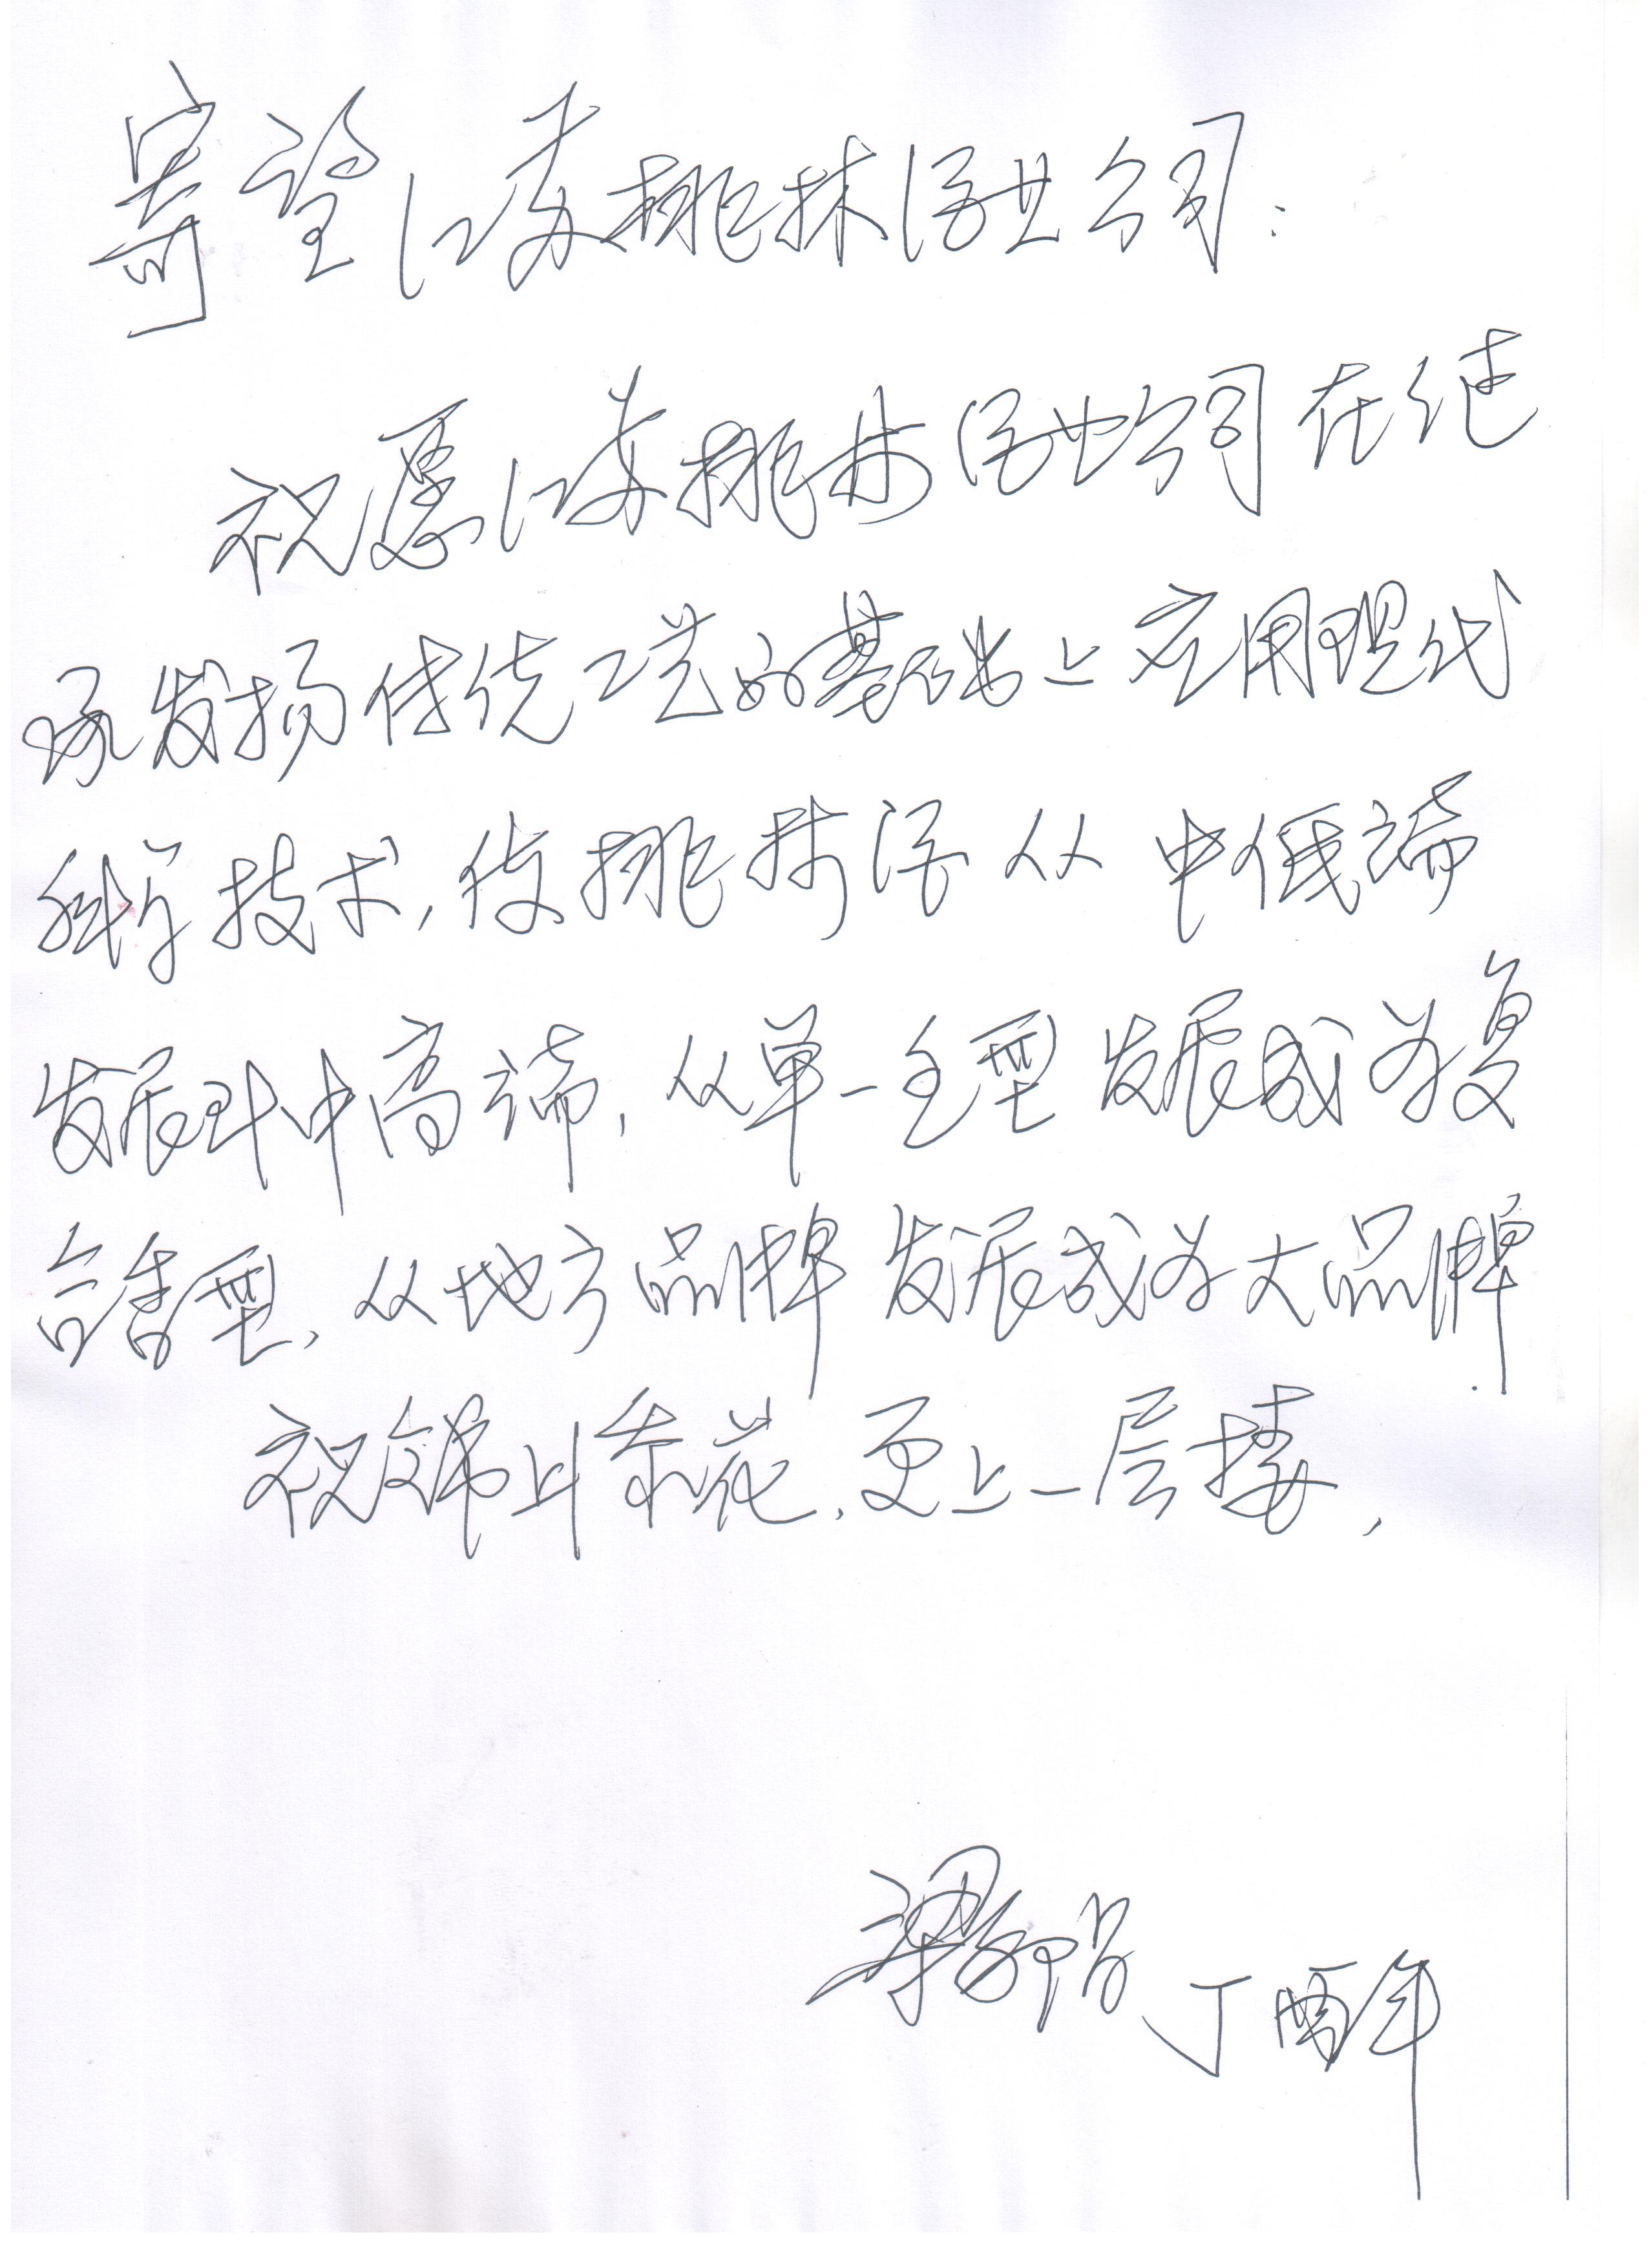 寄望江苏桃林酒业公司:
祝愿江苏桃林酒业公司在继
承发扬传统工艺的基础上应用现代
科学技术,使桃林酒从中低端
发展到中高端,从单一香型发展成为复
合香型,从地方品牌发展成为大品牌.
祝锦上添花,更上一层楼,
梁邦昌 丁酉年